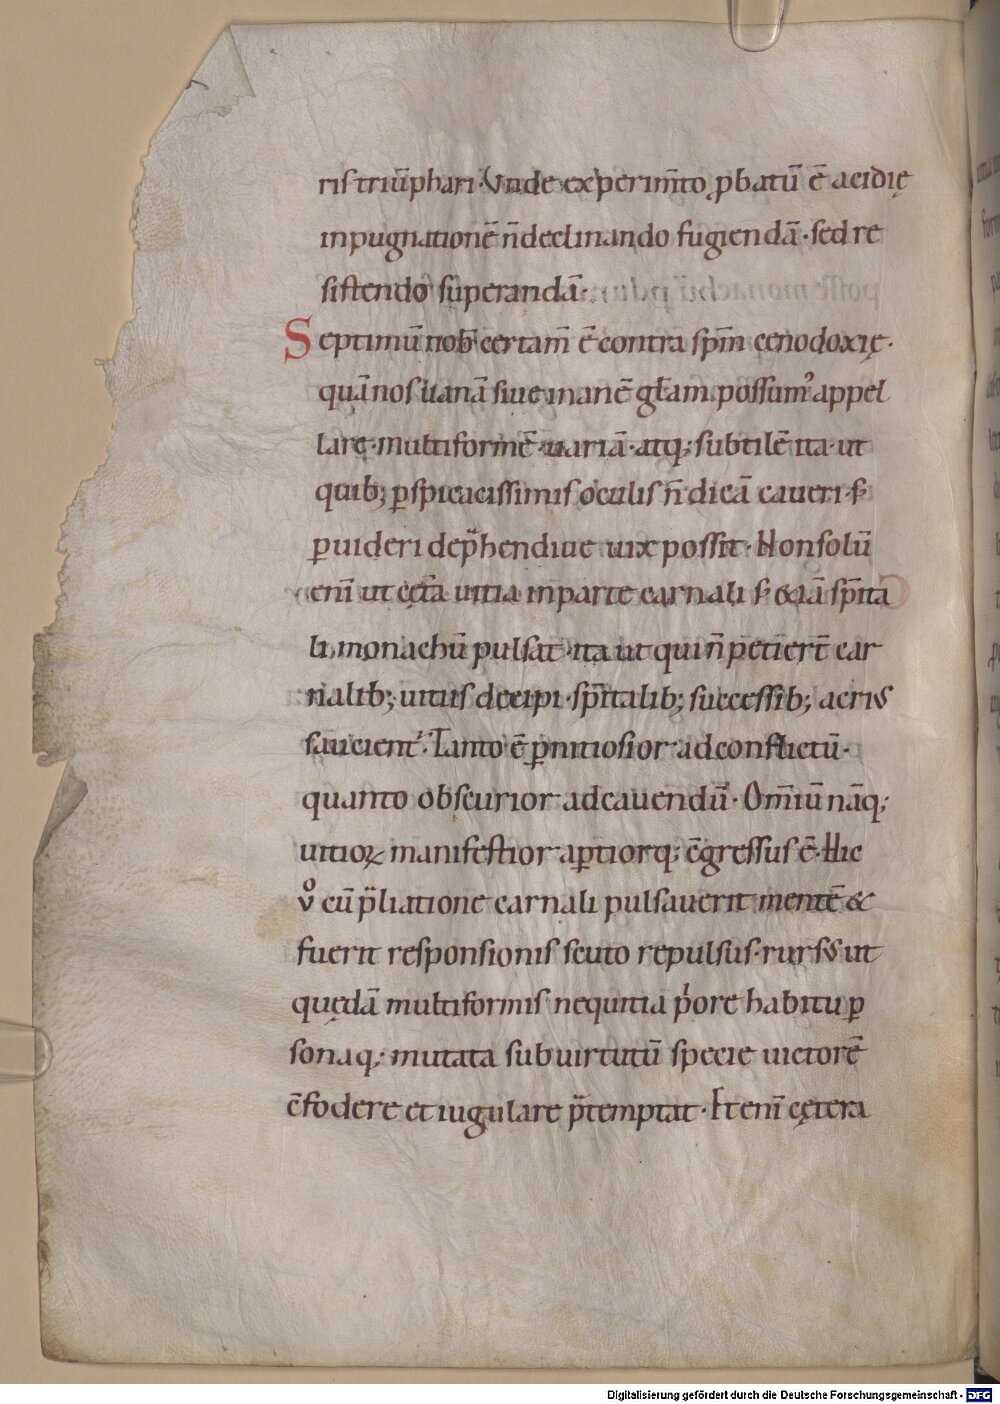 riſ triu̅phari· Vnde experim̅to ꝓbatu̅ e̅ acidię
inpugnatione̅ n̅ declinando fugienda̅· ſed re
ſiſtendo ſuperanda̅·
Septimu̅ nob̅ certam̅ e̅ contra ſpm̅ cenodoxię·
qua̅ nos uana̅ ſiue inane̅ gƚam poſſumꝰ appel
lare· multiforme̅· uaria̅· atq; ſubtile̅ ita· ut
quib; ꝑſpicaciſſimiſ oculiſ n̅ dica̅ caueri· ſꝫ
ꝑuideri dep̃hendiue uix poſſit· Non ſolu̅
eni̅ ut cęt̅a uitia in parte carnali ſꝫ &ia̅ ſpi̅ta
li monachu̅ pulſat· ita ut qui n̅ petiert̅ car
nalib; uitiis decipi· ſpi̅talib; ſucceſſib; acriuſ
ſaucient᷑· Tanto e̅ ꝑnitioſior ad conflictu̅·
quanto obſcurior ad cauendu̅· Om̅iu̅ na̅q;
uitioꝝ manifeſtior aꝑtiorq; c̅greſſus e̅· Hic
vͦ cu̅ p̃liatione carnali pulſauerit mente̅ &
fuerit reſponſioniſ ſcuto repulſus· rurſuſ ut
quęda̅ multiformiſ nequitia pͥore habitu ꝑ
ſonaq; mutata ſub uirtutu̅ ſpecie uictore̅
c̅fodere et iugulare p̃temptat· Eteni̅ cętera
Digitalisierung gefördert durch die Deutsche Forschungsgemeinschaft - DFG